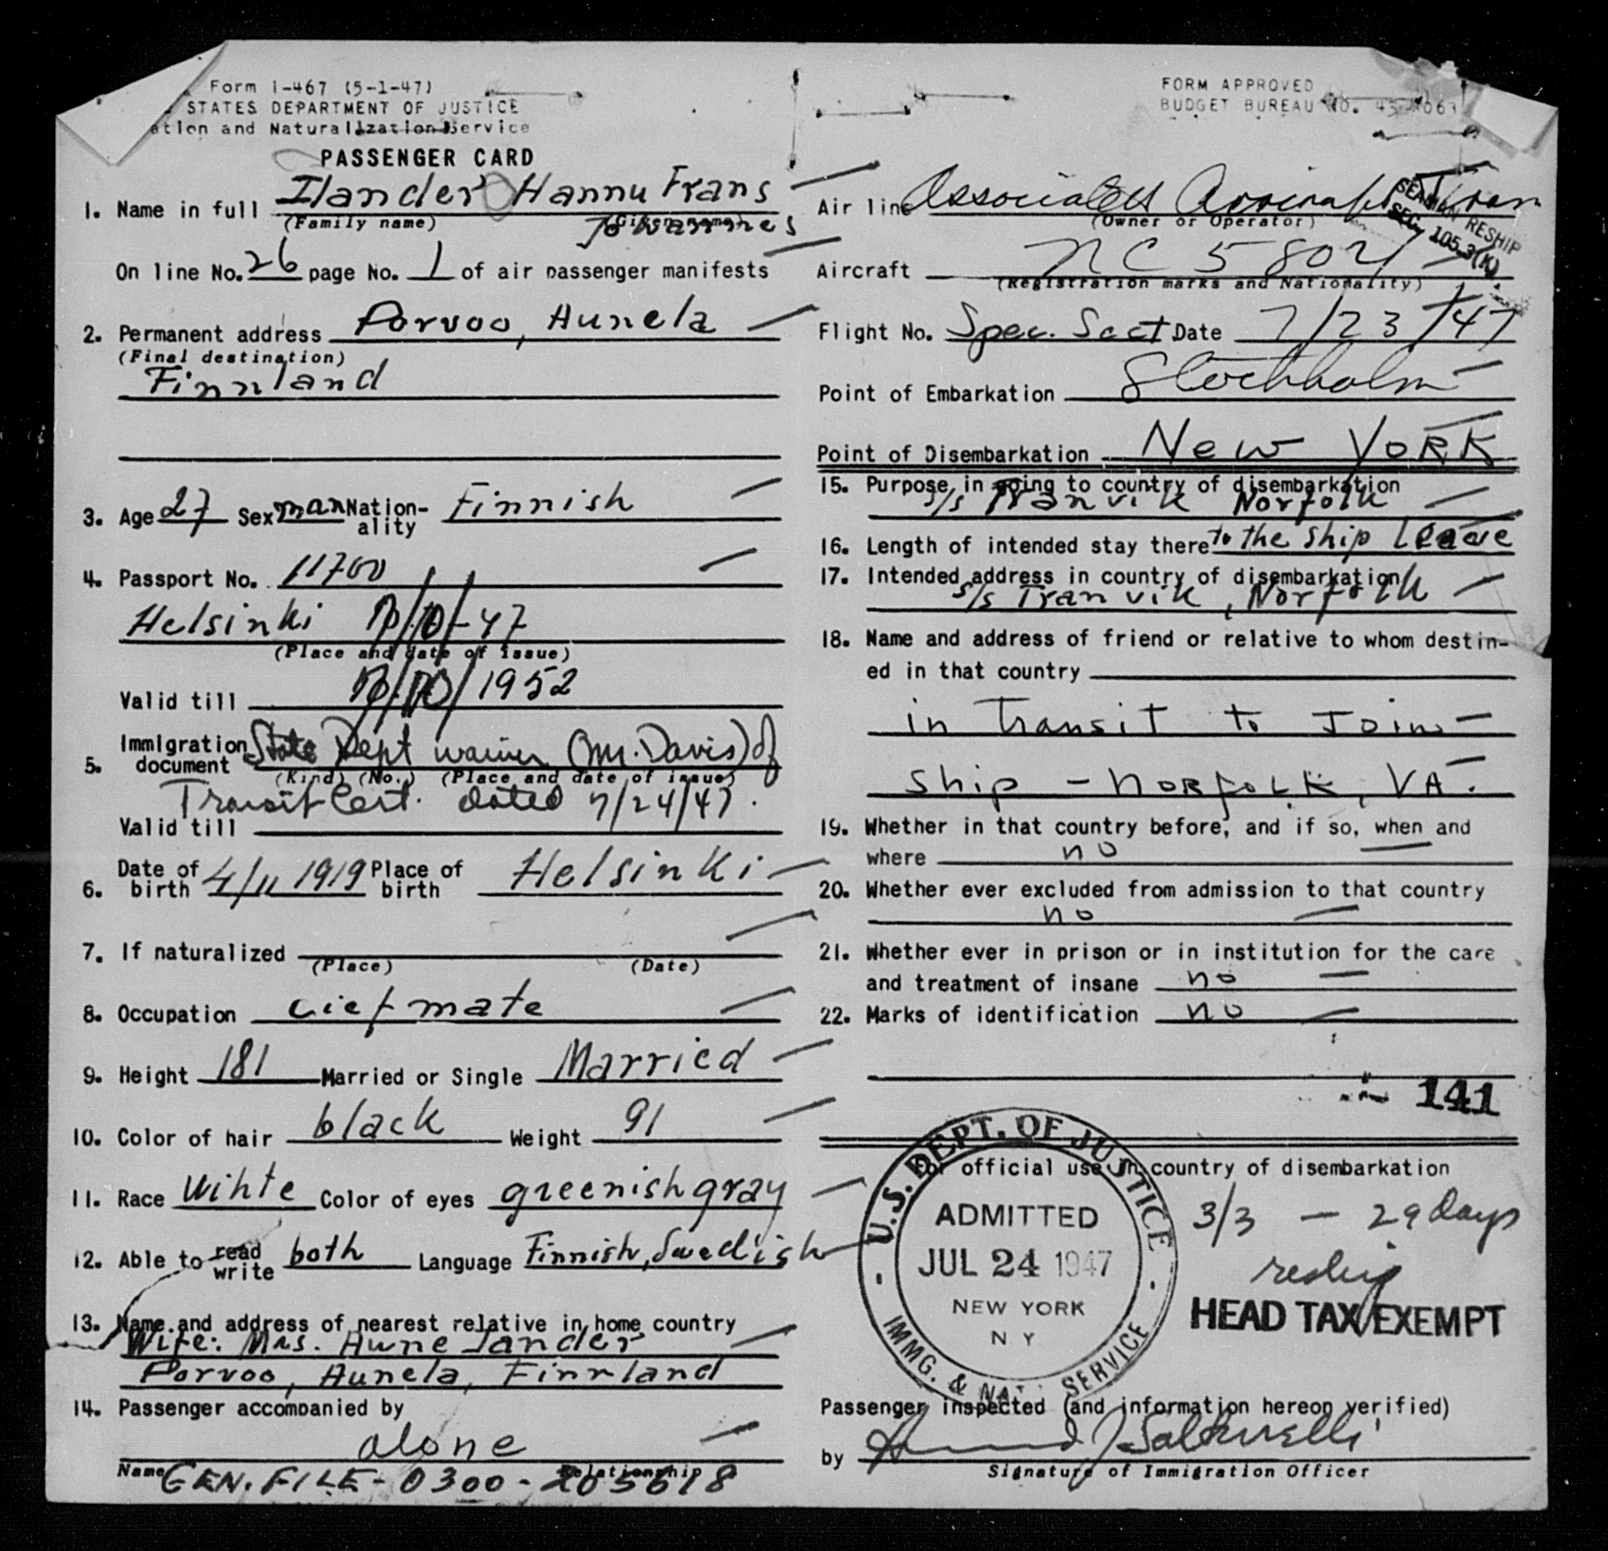 Form I-467 (5-1-47)
STATES DEPARTMENT OF JUSTICE
ation and Naturalization Service
PASSENGER CARD
1. Name in full Ilander Hannu Frans
(Family name) (Given name) Johannes
On line No. 26 page No. 1 of air passenger manifests
2. Permanent address Porvoo, Aunela
(Final destination)
Finnland
3. Age 27 Sex man Nation-ality Finnish
4. Passport No. 11700
Helsinki -47
(Place and date of issue)
Valid till 1952
5. Immigration document State Dept waiver (Mr. Davis) of
(Kind) (No.) (Place and date of issue)
Transit Cert. dated 7/24/47.
Valid till
6. Date of birth 4/11 1919 Place of birth Helsinki
7. If naturalized
(Place) (Date)
8. Occupation cief mate
9. Height 181 Married or Single Married
10. Color of hair black Weight 91
11. Race Wihte Color of eyes greenish gray
12. Able to read write both Language Finnish, Swedish
13. Name and address of nearest relative in home country
Wife: Mrs. Aune Ilander
Porvoo, Aunela, Finnland
14. Passenger accompanied by
alone
Name Relationship
GEN. FILE - 0300 - 205618
FORM APPROVED
BUDGET BUREAU NO.
Air line Associated
(Owner or Operator)
SEAMAN RESHIP
SEC. 105.3(K)
Aircraft NC 5802
(Registration marks and Nationality)
Flight No. Spec. Date 7/23/47
Point of Embarkation Stockholm
Point of Disembarkation New YORK
15. Purpose in going to country of disembarkation
s/s Tranvik Norfolk
16. Length of intended stay there to the ship leave
17. Intended address in country of disembarkation
s/s Tranvik, Norfolk
18. Name and address of friend or relative to whom destin-
ed in that country
in transit to Join
ship - NORFOLK, VA.
19. Whether in that country before, and if so, when and
where no
20. Whether ever excluded from admission to that country
no
21. Whether ever in prison or in institution for the care
and treatment of insane no
22. Marks of identification no
141
For official use in country of disembarkation
U.S. DEPT. OF JUSTICE
ADMITTED
JUL 24 1947
NEW YORK
N Y
IMMG. & NAT. SERVICE
3/3 - 29 days
reship
HEAD TAX EXEMPT
Passenger inspected (and information hereon verified)
by
Signature of Immigration Officer